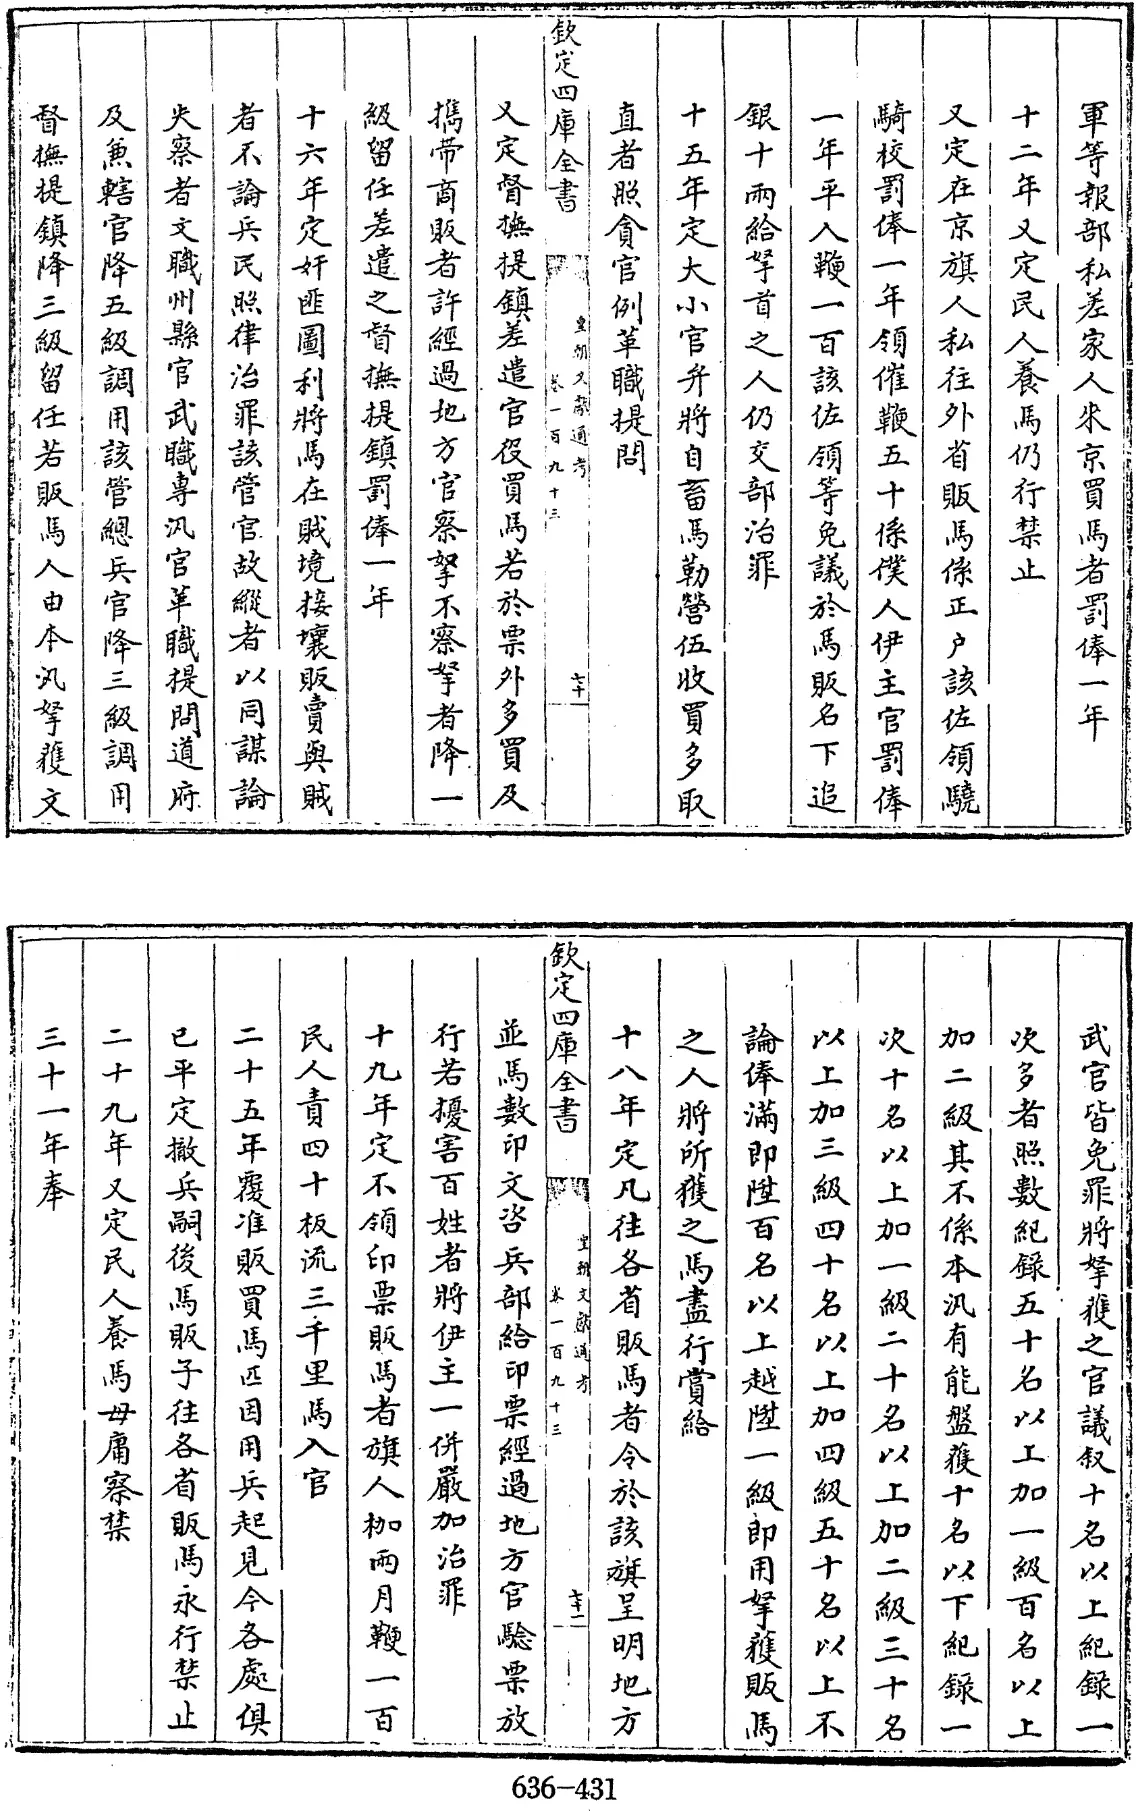 軍等報部私差家人來京買馬者罰俸一年
十二年又定民人養馬仍行禁止
又定在京旗人私往外省販馬係正戶該佐領驍
騎校罰俸一年領催鞭五十係僕人伊主官罰俸
一年平人鞭一百該佐領等免議於馬販名下追
銀十兩給拏首之人仍交部治罪
十五年定大小官弁將自畜馬勒營伍收買多取
直者照貪官例革職提問
欽定四庫全書
皇朝文獻通考
卷一百九十三
七十
又定督撫提鎮差遣官役買馬若於票外多買及
攜帶商販者許經過地方官察拏不察拏者降一
級留任差遣之督撫提鎮罰俸一年
十六年定奸匪圖利將馬在賊境接壤販賣與賊
者不論兵民照律治罪該管官故縱者以同謀論
失察者文職州縣官武職專汛官革職提問道府
及兼轄官降五級調用該管總兵官降三級調用
督撫提鎮降三級留任若販馬人由本汛拏獲文
武官皆免罪將拏獲之官議敘十名以上紀錄一
次多者照數紀錄五十名以上加一級百名以上
加二級其不係本汛有能盤獲十名以下紀錄一
次十名以上加一級二十名以上加二級三十名
以上加三級四十名以上加四級五十名以上不
論俸滿即陞百名以上越陞一級即用拏獲販馬
之人將所獲之馬盡行賞給
十八年定凡往各省販馬者令於該旗呈明地方
欽定四庫全書
皇朝文獻通考
卷一百九十三
七十一
並馬數印文咨兵部給印票經過地方官驗票放
行若擾害百姓者將伊主一併嚴加治罪
十九年定不領印票販馬者旗人枷兩月鞭一百
民人責四十板流三千里馬入官
二十五年覆准販買馬匹因用兵起見今各處俱
已平定撤兵嗣後馬販子往各省販馬永行禁止
二十九年又定民人養馬毋庸察禁
三十一年奉
636-431